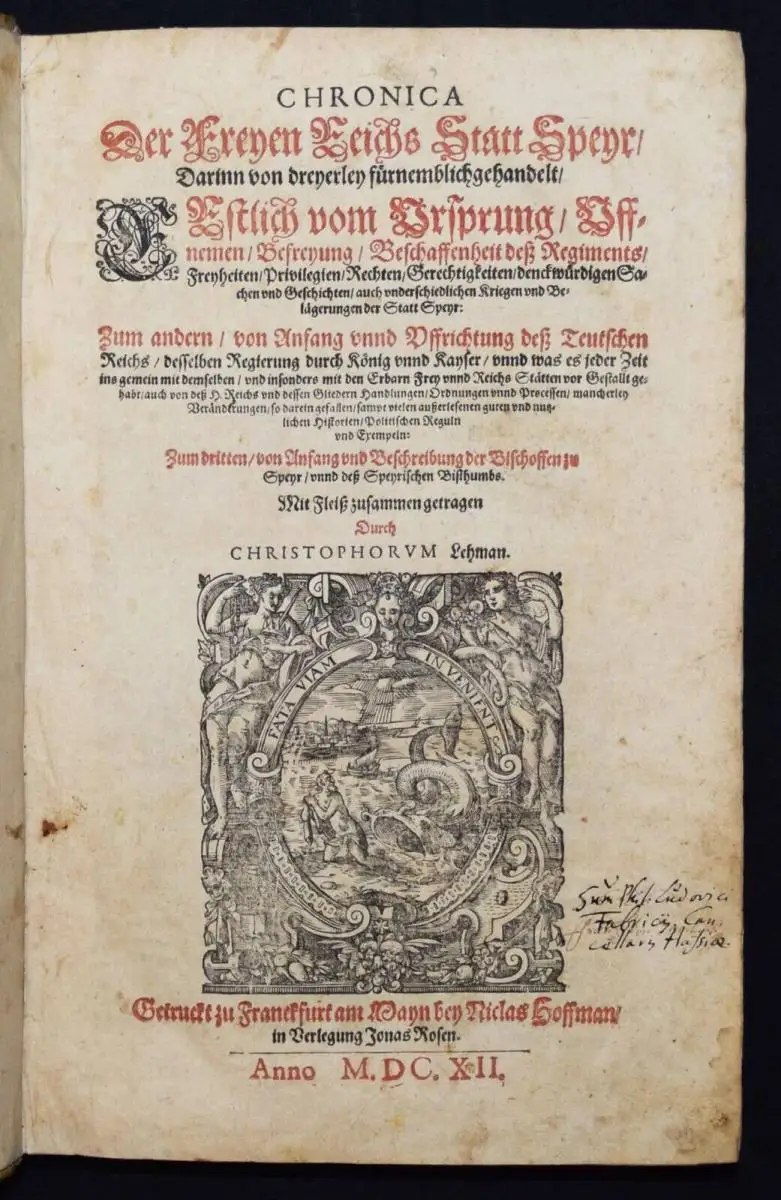 CHRONICA
Der Freyen Reichs Statt Speyr/
Darinn von dreyerley fürnemblich gehandelt/
Erstlich vom Vrsprung/ Vff-
nemen/ Befreyung/ Beschaffenheit deß Regiments/
Freyheiten/ Privilegien/ Rechten/ Gerechtigkeiten/ denckwürdigen Sa-
chen vnd Geschichten/ auch vnderschiedlichen Kriegen vnd Be-
lägerungen der Statt Speyr:
Zum andern/ von Anfang vnnd Vffrichtung deß Teutschen
Reichs/ desselben Regierung durch König vnnd Kayser/ vnnd was es jeder Zeit
ins gemein mit demselben/ vnd insonders mit den Erbarn Frey vnnd Reichs Stätten vor Gestallt ge-
habt/ auch von deß H. Reichs vnd dessen Gliedern Handlungen/ Ordnungen vnnd Processen/ mancherley
Veränderungen/ so darein gefallen/ sampt vielen außerlesenen guten vnd nutz-
lichen Historien/ Politischen Reguln
vnd Exempeln:
Zum dritten/ von Anfang vnd Beschreibung der Bischoffen zu
Speyr/ vnnd deß Speyrischen Bisthumbs.
Mit Fleiß zusammen getragen
Durch
CHRISTOPHORVM Lehman.
FATA VIAM INVENIENT
Sum Phil: Ludovici
Fabricij Can-
cellarij Hassiæ.
Getruckt zu Franckfurt am Mayn bey Niclas Hoffman/
in Verlegung Jonas Rosen.
Anno M.DC.XII.